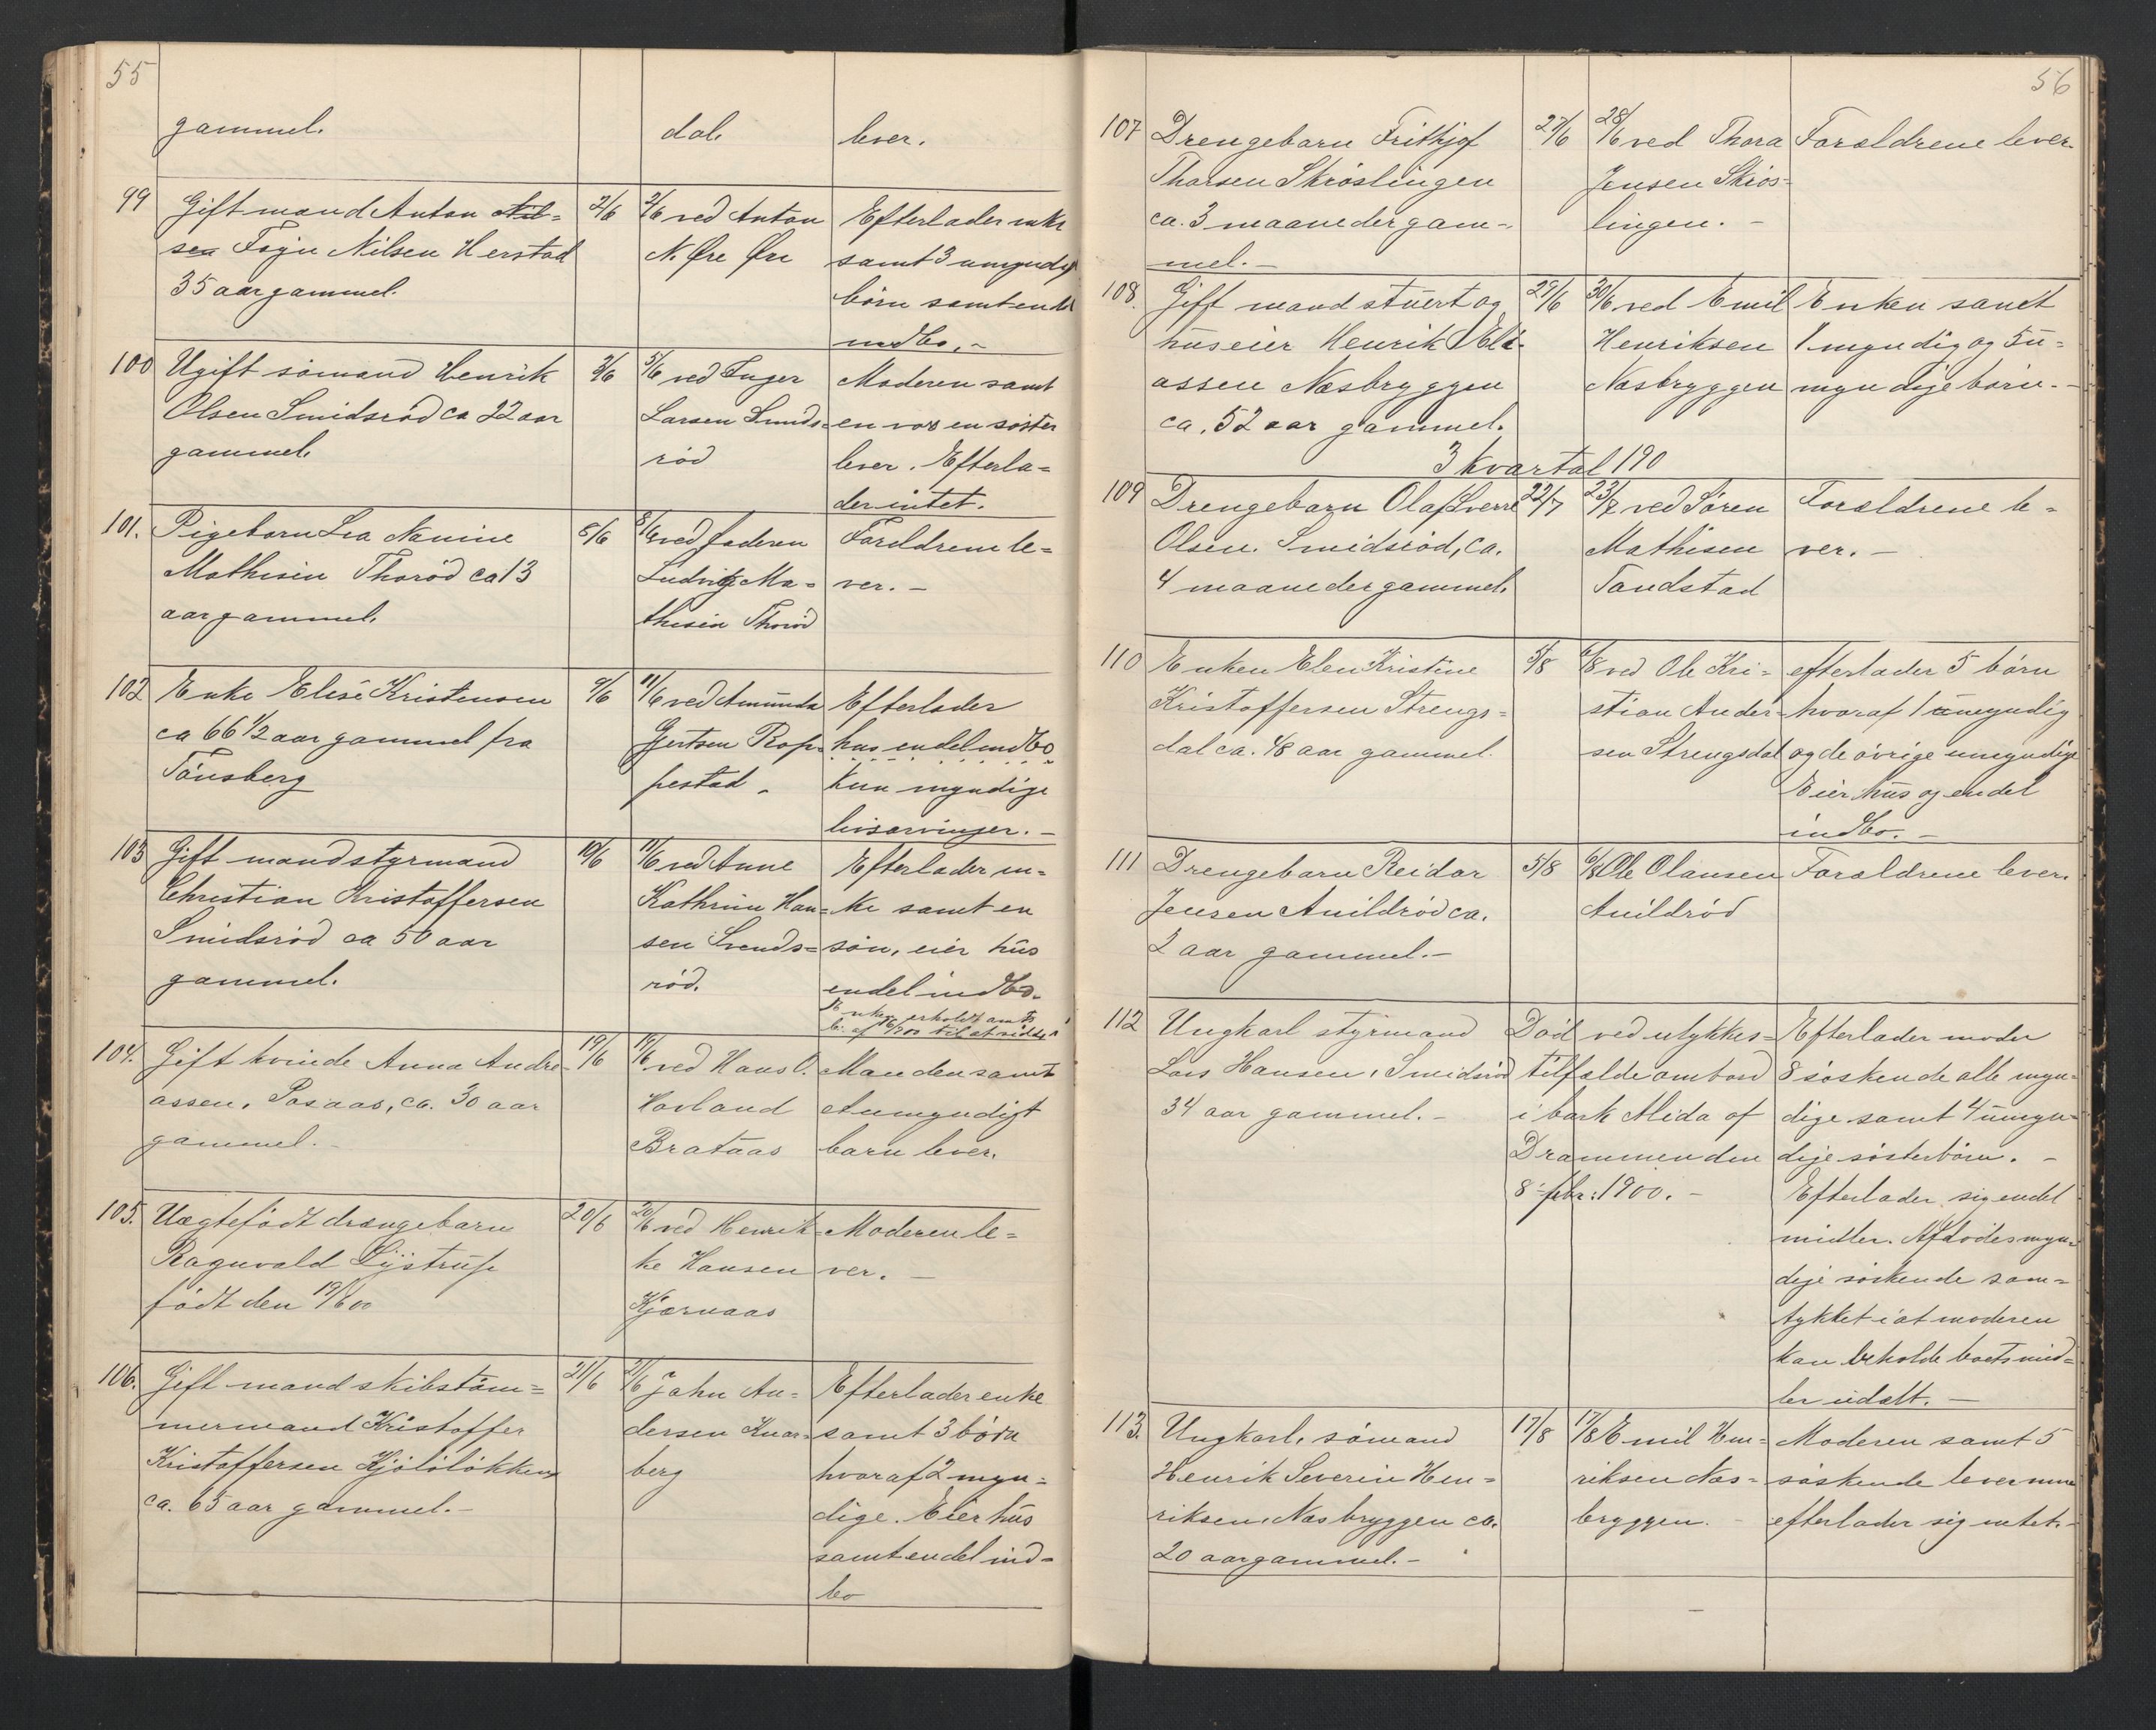 55
gammel.
dal.
lever.
99
Gift mand Anton Nil=
sen Tojn Nilsen Herstad
35 aar gammel.
2/6
2/6 ved Anton
N. Øre Øre
Efterlader enke
samt 3 umyndige
børn samt endel
indbo. -
100
Ugift sömand Henrik
Olsen Smidsröd ca 22 aar
gammel.
3/6
5/6 ved Inger
Larsen Smids=
röd
Moderen samt
en vox en söster
lever. Efterla=
der intet.
101.
Pigebarn Lea Namine
Mathisen Thoröd ca 13
aar gammel.
8/6
8/6 ved faderen
Ludvig Ma=
thisen Thoröd
Foreldrene le=
ver. -
102
Enke Elise Kristensen
ca 66 1/2 aar gammel fra
Tönsberg
9/6
11/6 ved Amunda
Gjertsen Rop=
pestad -
Efterlader
hus endel indbo
kun myndige
livsarvinger. -
103
Gift mand styrmand
Christian Kristoffersen
Smidsröd ca 50 aar
gammel.
10/6
11/6 ved Anne
Kathrine Han=
sen Svends=
röd.
Efterlader en=
ke samt en
sön, eier hus
endel indbo.
Enken erholdt amts
b. af
104.
Gift kvinde Anna Andre=
assen, Rosaas, ca. 30 aar
gammel. -
19/6
19/6 ved Hans O.
Havland
Brataas
Manden samt
et umyndigt
barn lever.
105.
Uægtefödt drengebarn
Ragnvald Lystrup
födt den 19/6 00
20/6
20/6 ved Henrik=
ke Hansen
Kjærnaas
Moderen le=
ver. -
106.
Gift mand skibstöm=
mermand Kristoffer
Kristoffersen Kjölölökken
ca. 65 aar gammel. -
21/6
21/6 John An=
dersen Knar=
berg
Efterlader enke
samt 3 börn
hvoraf 2 myn=
dige. Eier hus
samt endel ind=
bo
56
107
Drengebarn Frithjof
Thorsen Skröslingen
ca. 3 maaneder gam=
mel. -
27/6
28/6 ved Thora
Jensen Skrös=
lingen. -
Forældrene lever.
108.
Gift mand stuert og
huseier Henrik Eli=
assen Næsbryggen
ca. 52 aar gammel.
29/6
30/6 ved Emil
Henriksen
Næsbryggen
Enken samt
1 myndig og 5 u=
myndige börn. -
3 kvartal 190
109
Drengebarn Olaf Sverre
Olsen. Smidsröd, ca.
4 maaneder gammel.
22/7
23/7 ved Sören
Mathisen
Tandstad
Forældrene le=
ver. -
110
Enken Elen Kristine
Kristoffersen Strengs=
dal ca. 48 aar gammel.
5/8
6/8 ved Ole Kri=
stian Ander=
sen Strengsdal
efterlader 5 börn
hvoraf 1 umyndig
og de övrige umyndige
Eier hus og endel
indbo. -
111
Drengebarn Reidar
Jensen Anildröd ca.
2 aar gammel. -
5/8
6/8 Ole Olausen
Anildröd
Forældrene lever.
112
Ungkarl styrmand
Lars Hansen, Smidsröd
34 aar gammel. -
Död ved ulykkes=
tilfælde ombord
i bark Alida af
Drammen den
8' febr: 1900. -
Efterlader moder
8 söskende alle myn=
dige samt 4 umyn=
dige sösterbörn. -
Efterlader sig endel
midler. Afdödes myn=
dige söskende sam=
tykket i at moderen
kan beholde boets mid=
ler udelt. -
113.
Ungkarl, sömand
Henrik Severin Hen=
riksen, Næsbryggen ca.
20 aar gammel. -
17/8
17/8 Emil Hen=
riksen Næs=
bryggen. -
Moderen samt 5
söskende lever men
efterlader sig intet. -